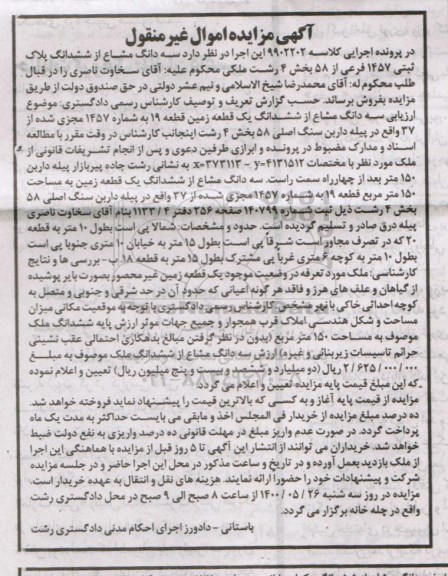 آگهی مزایده اموال غیر منقول
در پرونده اجرایی کلاسه ۹۹۰۲۲۰۲ این اجرا در نظر دارد سه دانگ مشاع از ششدانگ پلاک
ثبتی ۱۴۵۷ فرعی از ۵۸ بخش ۴ رشت ملکی محکوم علیه: آقای سخاوت ناصری را در قبال
طلب محکوم له: آقای محمدرضا شیخ الاسلامی و نیم عشر دولتی در حق صندوق دولت از طریق
مزایده بفروش برساند. حسب گزارش تعریف و توصیف کارشناس رسمی دادگستری: موضوع
ارزیابی سه دانگ مشاع از ششدانگ یک قطعه زمین قطعه ۱۹ به شماره ۱۴۵۷ مجزی شده از
۳۷ واقع در پیله داربن سنگ اصلی ۵۸ بخش ۴ رشت اینجانب کارشناس در وقت مقرر با مطالعه
اسناد و مدارک مضبوط در پرونده و ابرازی طرفین دعوی و پس از انجام تشریفات قانونی از
ملک مورد نظر با مختصات x=۳۷۳۱۱۳ – y=۴۱۳۱۵۱۲ به نشانی رشت جاده پیربازار پیله داربن
۱۵۰ متر بعد از چهارراه سمت راست. سه دانگ مشاع از ششدانگ یک قطعه زمین به مساحت
۱۵۰ متر مربع قطعه ۱۹ به شماره ۱۴۵۷ مجزی شده از ۳۷ واقع در پیله داربن سنگ اصلی ۵۸
بخش ۴ رشت ذیل ثبت شماره ۱۴۰۷۹۹ صفحه ۳۵۶ دفتر ۱۱۳۳/۴ بنام آقای سخاوت ناصری
پیله درق صادر و تسلیم گردیده است. حدود و مشخصات: شمالا پی است بطول ۱۰ متر به قطعه
۲۰ که در تصرف مجاور است شرقاً پی است بطول ۱۵ متر به خیابان ۱۰ متری جنوبا پی است
بطول ۱۰ متر به کوچه ۶ متری غرباً پی مشترک بطول ۱۵ متر به قطعه ۱۸ ب- بررسی ها و نتایج
کارشناسی: ملک مورد تعرفه در وضعیت موجود یک قطعه زمین غیر محصور بصورت بایر پوشیده
از گیاهان و علف های هرز و فاقد هر گونه اعیانی که حدود آن در حد شرقی و جنوبی و متصل به
کوچه احداثی خاکی با نهر مشخص کارشناس رسمی دادگستری با توجه به موقعیت مکانی میزان
مساحت و شکل هندسی املاک قرب همجوار و جمیع جهات موثر ارزش پایه ششدانگ ملک
موصوف به مساحت ۱۵۰ متر مربع (بدون در نظر گرفتن مبالغ بدهکاری احتمالی عقب نشینی
حرائم تاسیسات زیربنائی و غیره) ارزش سه دانگ مشاع از ششدانگ ملک موصوف به مبلغ
۲/۶۲۵/۰۰۰/۰۰۰ ریال (دو میلیارد و ششصد و بیست و پنج میلیون ریال) تعیین و اعلام نموده
که این مبلغ قیمت پایه مزایده تعیین و اعلام می گردد.
مزایده از قیمت پایه آغاز و به کسی که بالاترین قیمت را پیشنهاد نماید فروخته خواهد شد.
ده درصد مبلغ مزایده از خریدار فی المجلس اخذ و مابقی می بایست حداکثر به مدت یک ماه
پرداخت گردد. در صورت عدم واریز مبلغ در مهلت قانونی ده درصد واریزی به نفع دولت ضبط
خواهد شد. خریداران می توانند از انتشار این آگهی تا ۵ روز قبل از مزایده با هماهنگی این اجرا
از ملک بازدید بعمل آورده و در تاریخ و ساعت مذکور در محل این اجرا حاضر و در جلسه مزایده
شرکت و پیشنهادات خود را حضورا ارائه نمایند. هزینه های نقل و انتقال به عهده خریدار است.
مزایده در روز سه شنبه ۲۶ / ۰۵ / ۱۴۰۰ از ساعت ۸ صبح الی ۹ صبح در محل دادگستری رشت
واقع در چله خانه برگزار می گردد.
باستانی - دادورز اجرای احکام مدنی دادگستری رشت